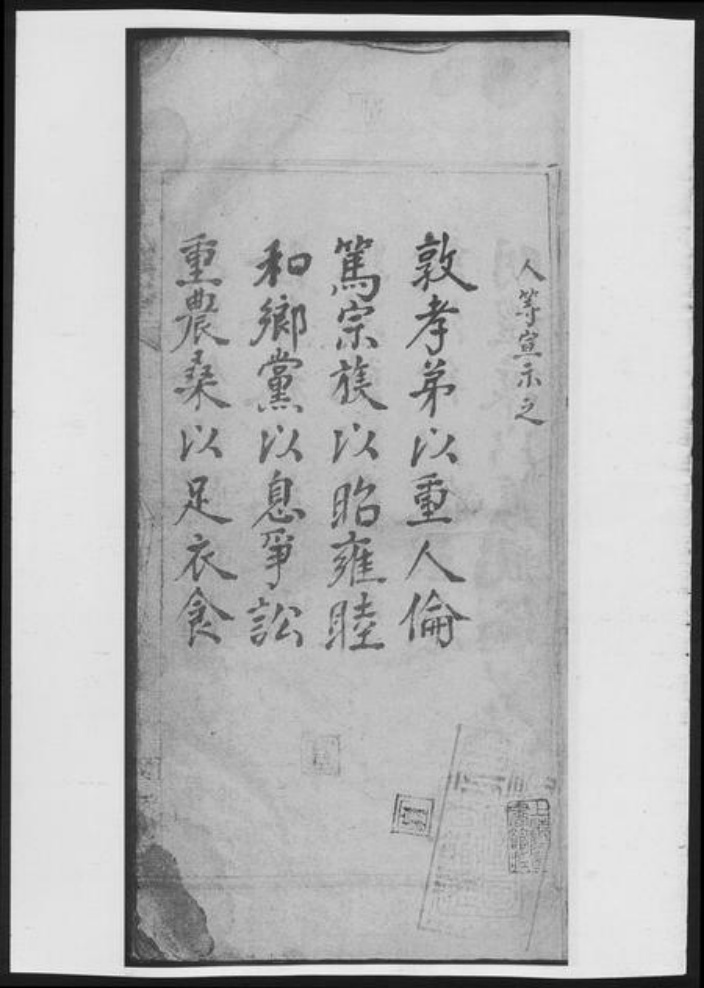 人等宣示之
敦孝弟以重人倫
篤宗族以昭雍睦
和鄉黨以息爭訟
重農桑以足衣食